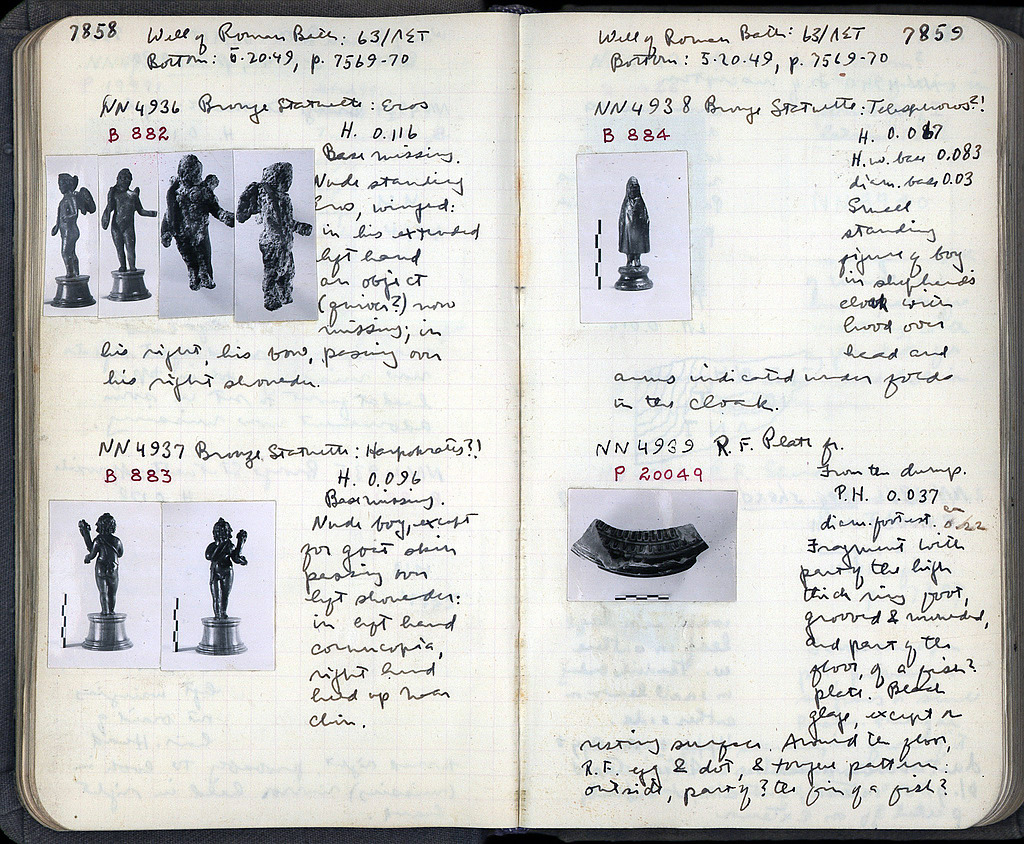 7858
Well of Roman Bath: 63/ΛΣΤ
Bottom: 5.20.49, p. 7569-70
NN 4936 Bronze Statuette: Eros
B 882
H. 0.116
Base missing.
Nude standing
Eros, winged:
in his extended
left hand
an object
(quiver?) now
missing; in
his right, his bow, passing over
his right shoulder.
NN 4937 Bronze Statuette: Harpokrates?!
B 883
H. 0.096
Base missing.
Nude boy, except
for goat skin
passing over
left shoulder:
in left hand
cornucopia,
right hand
held up near
chin.
Well of Roman Bath: 63/ΛΣΤ
7859
Bottom: 5.20.49, p. 7569-70
NN 4938 Bronze Statuette: Telesphoros?!
B 884
H. 0.067
H.w. base 0.083
diam. base 0.03
Small
standing
figure of boy
in shepherd's
cloak with
hood over
head and
arms indicated under folds
in the cloak.
NN 4939 R.F. Plate fr.
P 20049
From the dump.
P.H. 0.037
diam. foot est. 0.22
Fragment with
part of the high
thick ring foot,
grooved & moulded,
and part of the
floor, of a fish?
plate. Black
glaze, except on
resting surface. Around the floor,
R.F. egg & dot, & tongue pattern:
outside, part of? the fin of a fish?